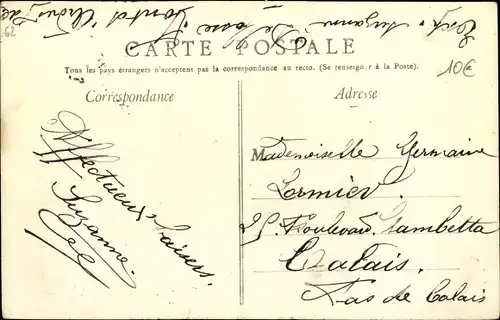 62
Suzanne
CARTE POSTALE
Tous les pays étrangers n'acceptent pas la correspondance au recto. (Se renseigner à la Poste).
10€
Correspondance
Adresse
Affectueux baisers.
Suzanne.
Mademoiselle Germaine
Lormier.
25. Boulevard Gambetta
Calais.
Pas de Calais